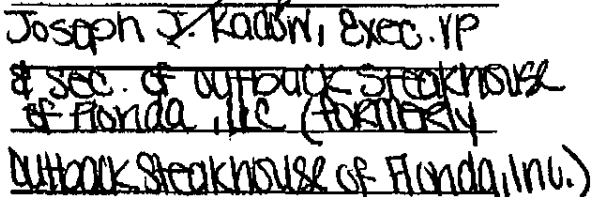 Joseph J. Kadow, Exec. VP
& Sec. of Outback Steakhouse
of Florida, LLC (formerly
Outback Steakhouse of Florida, Inc.)